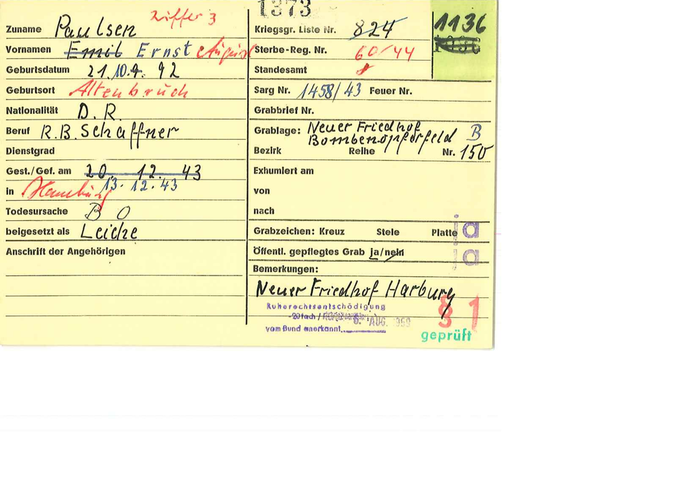 1373
Ziffer 3
Zuname Paulsen
Vornamen Emil Ernst August
Geburtsdatum 21.10.4.92
Geburtsort Altenbruch
Nationalität D.R.
Beruf R.B.Schaffner
Dienstgrad
Gest./Gef. am 20.12.43
13.12.43
in Hamburg
Todesursache B O
beigesetzt als Leiche
Anschrift der Angehörigen
Kriegsgr. Liste Nr. 824
1136
Sterbe-Reg. Nr. 60/44
Standesamt
Sarg Nr. 1458/43 Feuer Nr.
Grabbrief Nr.
Grablage: Neuer Friedhof
Bombenopferfeld B
Bezirk Reihe Nr. 150
Exhumiert am
von
nach
Grabzeichen: Kreuz Stele Platte ja
Öffentl. gepflegtes Grab ja/nein ja
Bemerkungen:
Neuer Friedhof Harburg
Ruherechtsentschädigung
-20fach /
vom Bund anerkannt AUG.
§ 1
geprüft